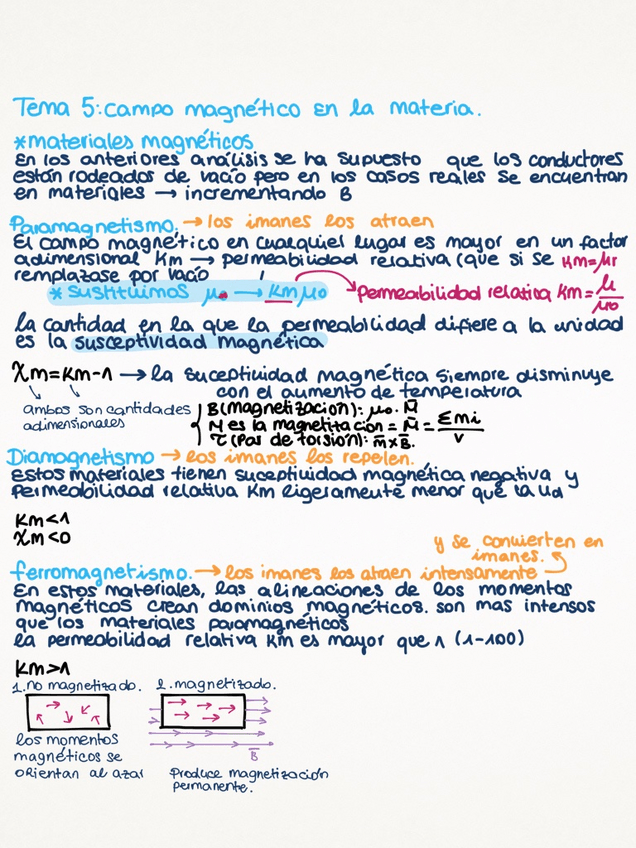 Tema 5: campo magnético en la materia.
*materiales magnéticos
En los anteriores análisis se ha supuesto que los conductores
están rodeados de vacío pero en los casos reales se encuentran
en materiales → incrementando B
Paramagnetismo. → los imanes los atraen
El campo magnético en cualquier lugar es mayor en un factor
adimensional Km → permeabilidad relativa (que si se Km=μr
remplazase por vacío
* sustituimos μo → Km μo permeabilidad relativa Km = μ/μo
la cantidad en la que la permeabilidad difiere a la unidad
es la susceptividad magnética
χm=Km-1 → la suceptividad magnética siempre disminuye
con el aumento de temperatura
ambos son cantidades
adimensionales
B(magnetización): μo. M̄
M es la magnetitacion = M̄ = Σmi/v
τ(Par de torsión): m̄ x B̄.
Diamagnetismo → los imanes los repelen.
Estos materiales tienen suceptividad magnética negativa y
permeabilidad relativa Km ligeramente menor que la ud
Km<1
χm<0
y se convierten en
imanes.
ferromagnetismo. → los imanes los atraen intensamente
En estos materiales, las alineaciones de los momentos
magnéticos crean dominios magnéticos. son mas intensos
que los materiales paramagnéticos
la permeabilidad relativa Km es mayor que 1 (1-100)
Km>1
1. no magnetizado. 2. magnetizado.
B̄
los momentos
magnéticos se
orientan al azar
Produce magnetización
permanente.